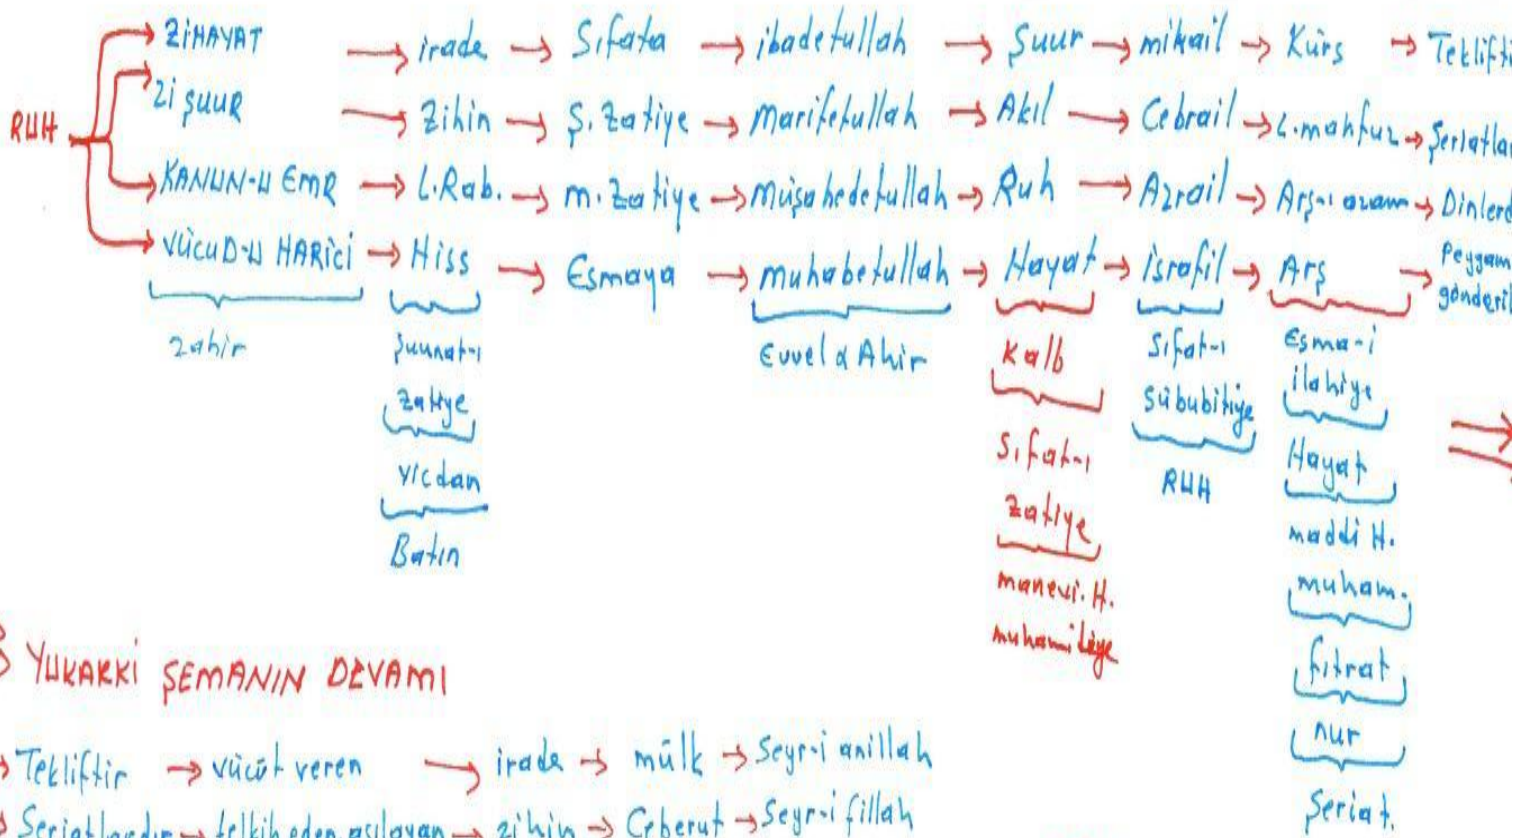 ZİHAYAT → irade → Sıfata → ibadetullah → Şuur → mikail → Kürs → Teklifti
RUH
Zi ŞUUR → Zihin → Ş. Zatiye → Marifetullah → Akıl → Cebrail → L.mahfuz → Şeriatla
KANUN-U EMR → L.Rab. → m. Zatiye → Müşahedetullah → Ruh → Azrail → Arş-ı azam → Dinlerd
VÜCUD-U HARİCİ → Hiss → Esmaya → muhabetullah → Hayat → israfil → Arş → Peygam
gönderil
zahir
şuunat-ı
zatiye
vicdan
Batın
Evvel & Ahir
Kalb
Sıfat-ı
zatiye
manevi. H.
Sıfat-ı
sübubitiye
RUH
Esma-i
ilahiye
Hayat
maddi H.
muham.
fıtrat
nur
Şeriat.
YUKARKİ ŞEMANIN DEVAMI
→ Tekliftir → vücüt veren → irade → mülk → Seyr-i anillah
→ Şeriatlardır → telkih eden aşılayan → zihin → Ceberut → Seyr-i fillah